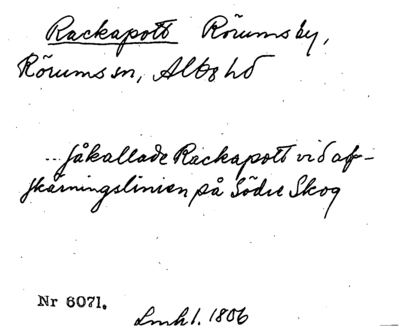 Rackapott Rörumsby,
Rörums sn, Albo hd
... såkallade Rackapott vid af-
skärningslinien på Södre Skog
Nr 6071.
Lmhl. 1806